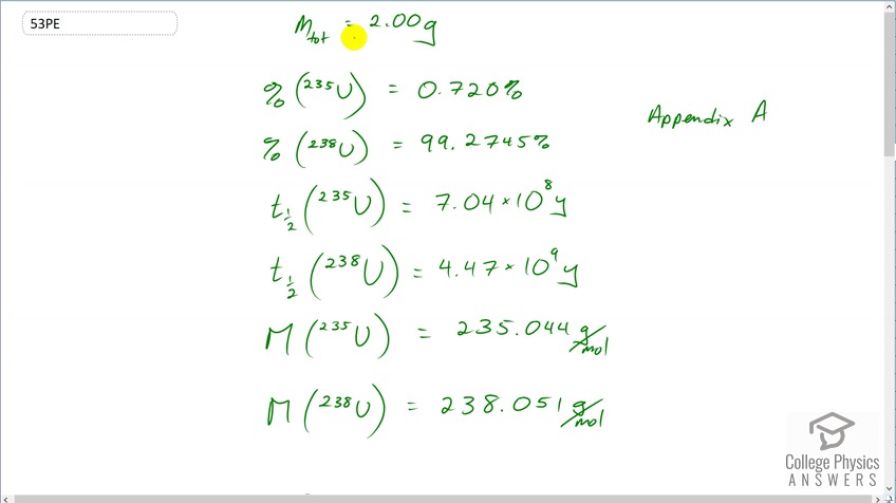 53PE
m_tot = 2.00g
% (²³⁵U) = 0.720%
Appendix A
% (²³⁸U) = 99.2745%
t_½ (²³⁵U) = 7.04 × 10⁸ y
t_½ (²³⁸U) = 4.47 × 10⁹ y
M (²³⁵U) = 235.044 g/mol
M (²³⁸U) = 238.051 g/mol
College Physics
ANSWERS